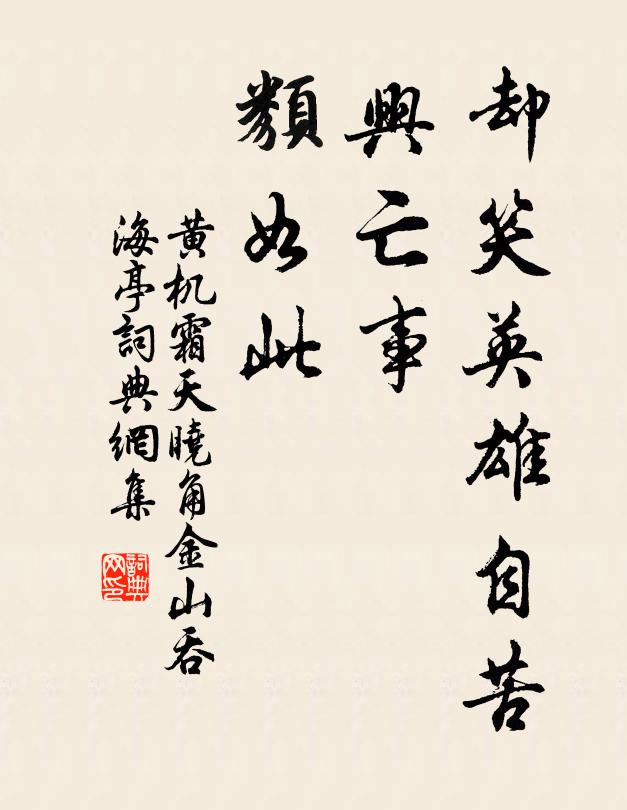 却笑英雄自苦
興亡事
類如此
黄机霜天曉角金山吞
海亭詞典網集
詞典网印